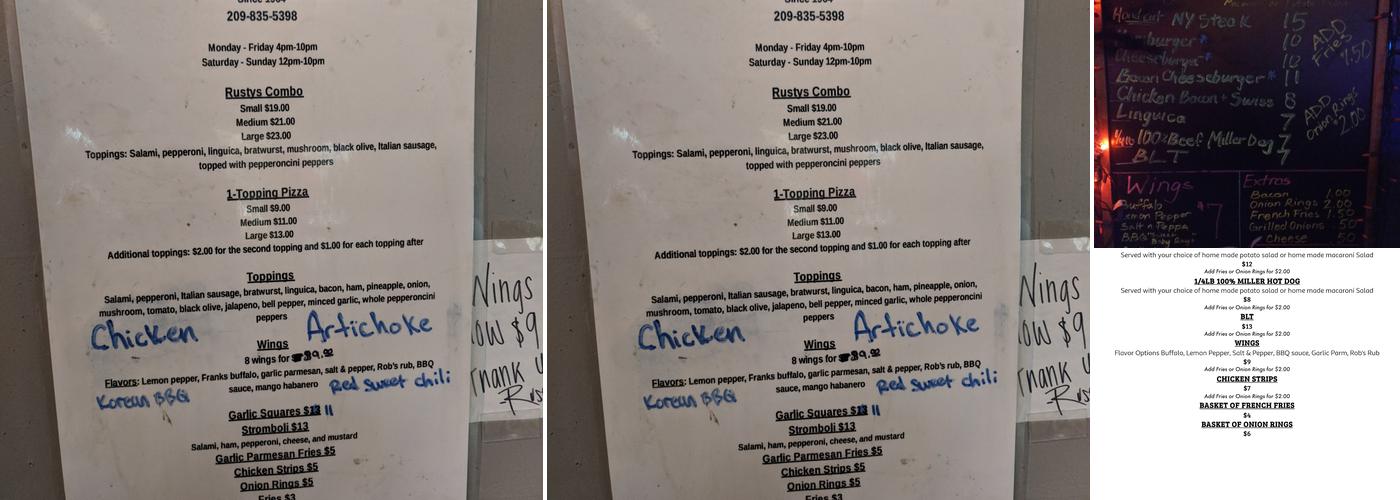 209-835-5398
Monday - Friday 4pm-10pm
Saturday - Sunday 12pm-10pm
Rustys Combo
Small $19.00
Medium $21.00
Large $23.00
Toppings: Salami, pepperoni, linguica, bratwurst, mushroom, black olive, Italian sausage,
topped with pepperoncini peppers
1-Topping Pizza
Small $9.00
Medium $11.00
Large $13.00
Additional toppings: $2.00 for the second topping and $1.00 for each topping after
Toppings
Salami, pepperoni, Italian sausage, bratwurst, linguica, bacon, ham, pineapple, onion,
mushroom, tomato, black olive, jalapeno, bell pepper, minced garlic, whole pepperoncini
peppers
Chicken Artichoke
Wings
8 wings for
Flavors: Lemon pepper, Franks buffalo, garlic parmesan, salt & pepper, Rob's rub, BBQ
sauce, mango habanero Red sweet chili
Korean BBQ
Garlic Squares $ 11
Stromboli $13
Salami, ham, pepperoni, cheese, and mustard
Garlic Parmesan Fries $5
Chicken Strips $5
Onion Rings $5
Fries $3
Wings
$9
209-835-5398
Monday - Friday 4pm-10pm
Saturday - Sunday 12pm-10pm
Rustys Combo
Small $19.00
Medium $21.00
Large $23.00
Toppings: Salami, pepperoni, linguica, bratwurst, mushroom, black olive, Italian sausage,
topped with pepperoncini peppers
1-Topping Pizza
Small $9.00
Medium $11.00
Large $13.00
Additional toppings: $2.00 for the second topping and $1.00 for each topping after
Toppings
Salami, pepperoni, Italian sausage, bratwurst, linguica, bacon, ham, pineapple, onion,
mushroom, tomato, black olive, jalapeno, bell pepper, minced garlic, whole pepperoncini
peppers
Chicken Artichoke
Wings
8 wings for
Flavors: Lemon pepper, Franks buffalo, garlic parmesan, salt & pepper, Rob's rub, BBQ
sauce, mango habanero Red sweet chili
Korean BBQ
Garlic Squares $ 11
Stromboli $13
Salami, ham, pepperoni, cheese, and mustard
Garlic Parmesan Fries $5
Chicken Strips $5
Onion Rings $5
Fries $3
Wings
$9
NY Steak 15
10
Cheeseburger* 10
Bacon Cheeseburger* 11
Chicken Bacon + Swiss 8
Linguica 7
100% Beef Miller Dog 7
BLT 7
ADD Fries 1.50
ADD Onion Rings 2.00
Wings
Buffalo
Lemon Pepper
Salt n Peppa
BBQ
7
Extras
Bacon 1.00
Onion Rings 2.00
French Fries 1.50
Grilled Onions .50
Cheese .50
Served with your choice of home made potato salad or home made macaroni Salad
$12
Add Fries or Onion Rings for $2.00
1/4LB 100% MILLER HOT DOG
Served with your choice of home made potato salad or home made macaroni Salad
$8
Add Fries or Onion Rings for $2.00
BLT
$13
Add Fries or Onion Rings for $2.00
WINGS
Flavor Options Buffalo, Lemon Pepper, Salt & Pepper, BBQ sauce, Garlic Parm, Rob's Rub
$9
Add Fries or Onion Rings for $2.00
CHICKEN STRIPS
$7
Add Fries or Onion Rings for $2.00
BASKET OF FRENCH FRIES
$4
BASKET OF ONION RINGS
$6